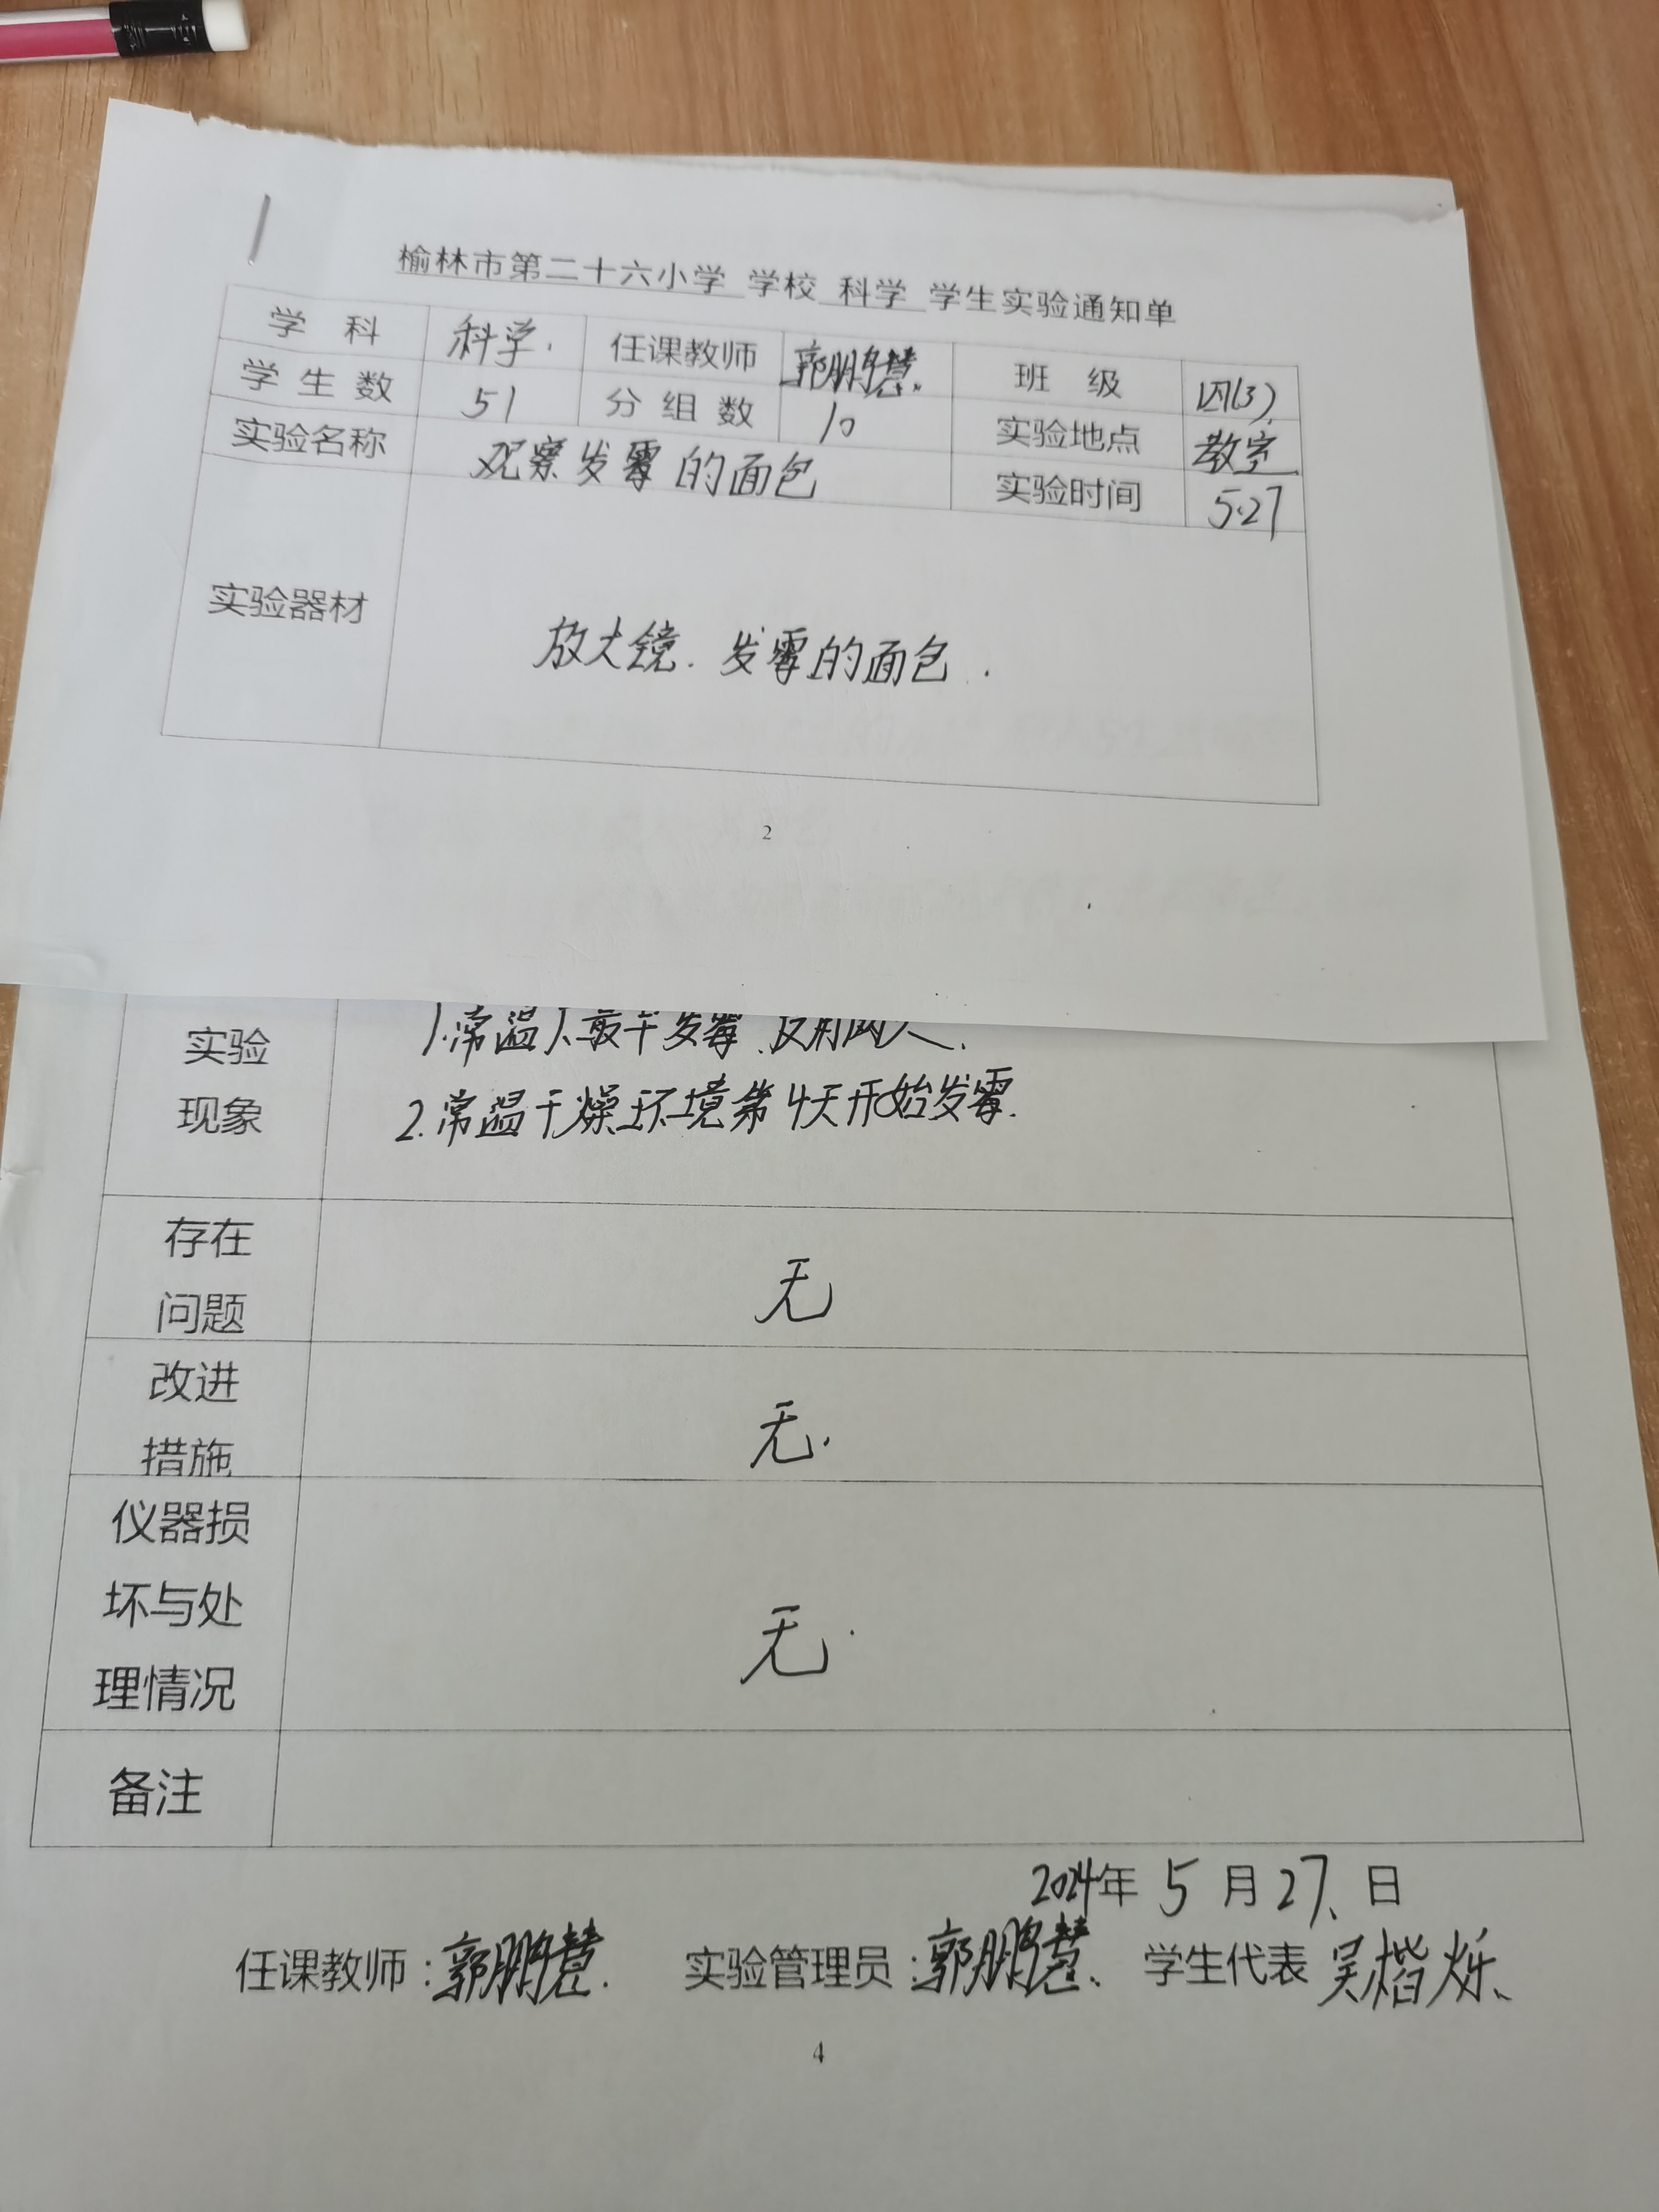 榆林市第二十六小学 学校 科学 学生实验通知单
学 科 科学. 任课教师 郭鹏慧. 班 级 四(3).
学 生 数 51 分 组 数 10 实验地点 教室
实验名称 观察发霉的面包 实验时间 5.27
实验器材 放大镜. 发霉的面包.
2
实验 1.常温 发霉
现象 2.常温干燥环境第4天开始发霉.
存在
问题 无
改进
措施 无.
仪器损
坏与处
理情况 无.
备注
2024年 5 月 27、日
任课教师:郭鹏慧. 实验管理员:郭鹏慧、 学生代表 吴楷烁、
4